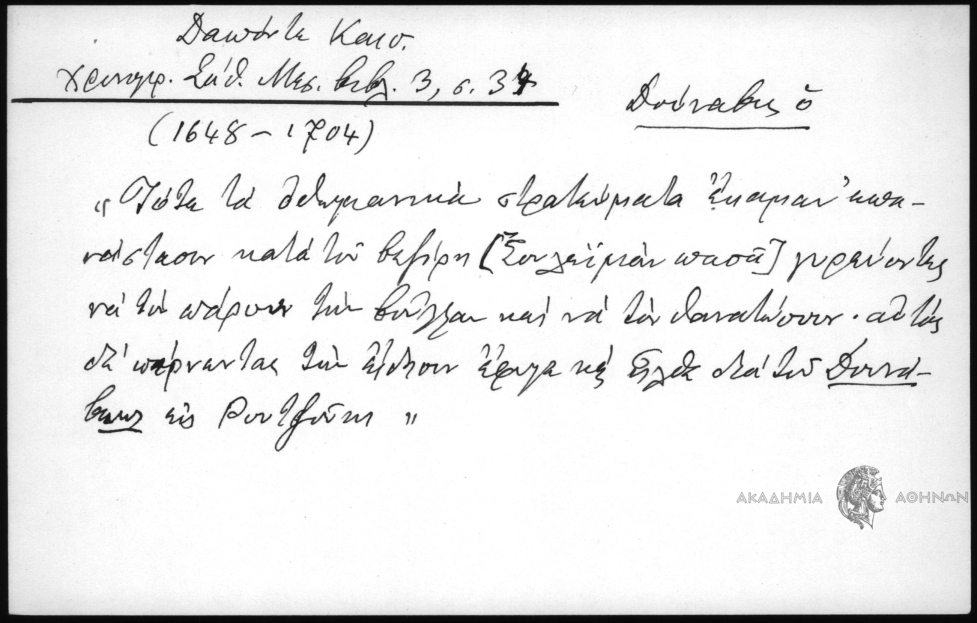 Δαπόντε Καισ.
χρονογρ. Σάθ. Μεσ. βιβλ. 3, σ. 34
Δούναβης ὁ
(1648 – 1704)
„ Τότε τὰ ὀθωμανικὰ στρατεύματα ἔκαμαν ἐπα-
νάστασιν κατὰ τοῦ βεζίρη [Σουλεϊμὰν πασᾶ] γυρεύοντες
νὰ τοῦ πάρουν τὴν βούλλαν καὶ νὰ τὸν θανατώσουν · αὐτὸς
δὲ παίρνωντας τὴν εἴδησιν ἔφυγε καὶ ἦλθε διὰ τοῦ Δουνά-
βεως εἰς Ρουτζούκι „
ΑΚΑΔΗΜΙΑ ΑΘΗΝΩΝ